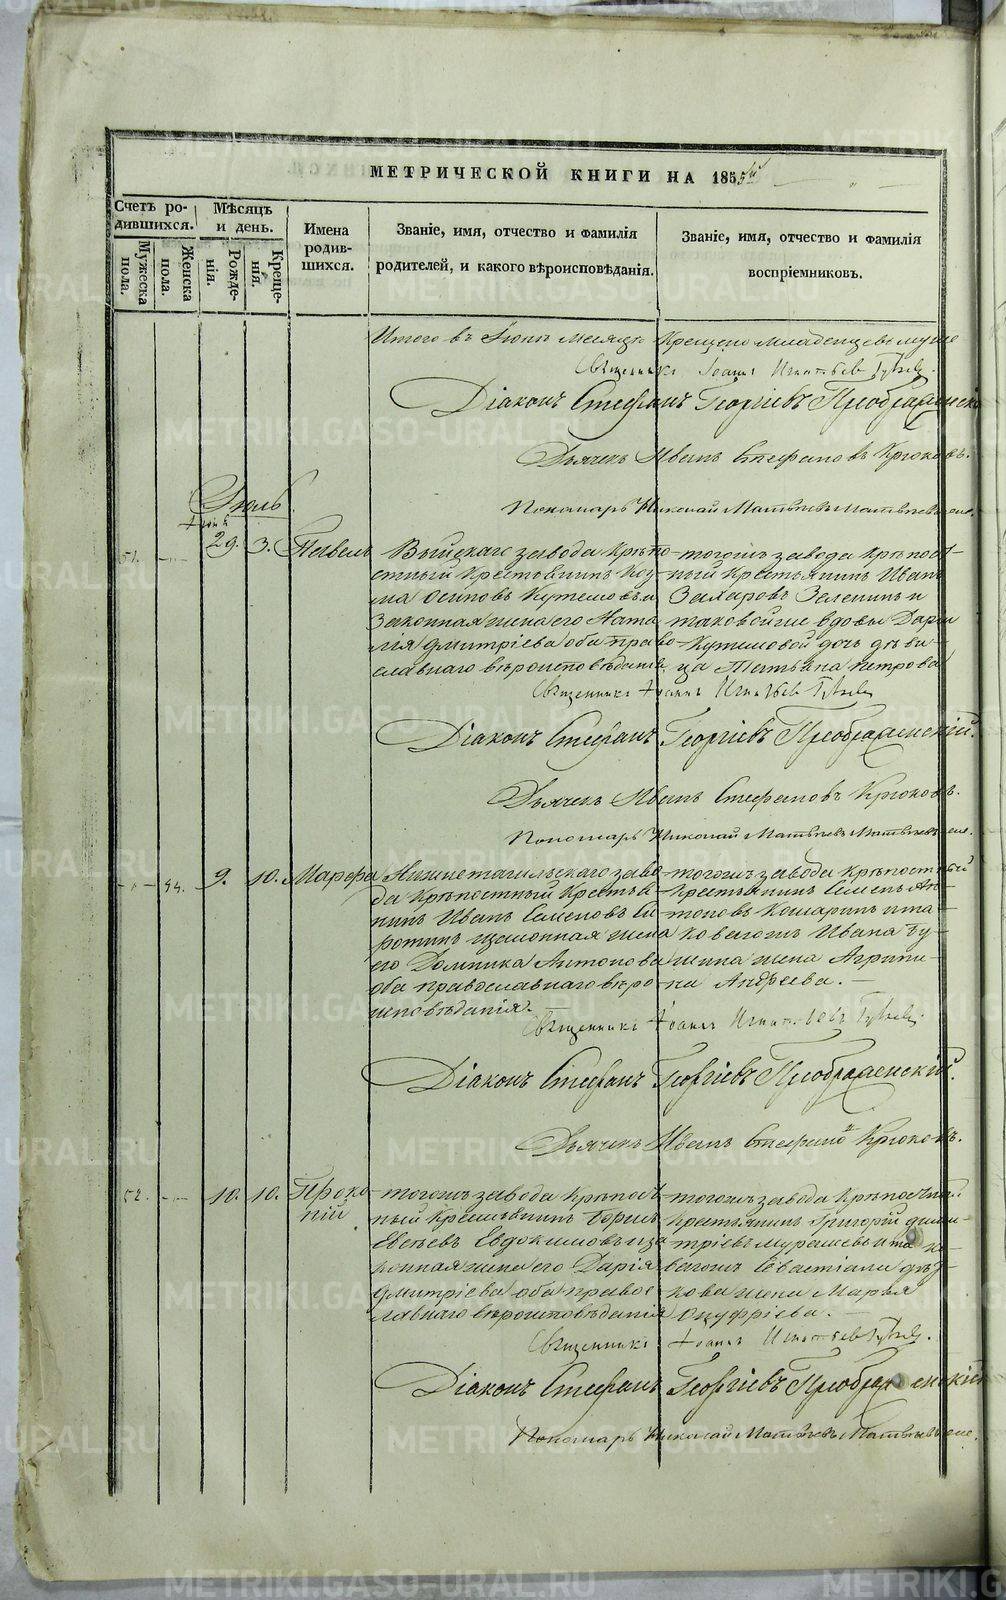 МЕТРИЧЕСКОЙ КНИГИ НА 1855й
Счетъ ро-
дившихся.
Мужеска
пола.
Женска
пола.
Мѣсяцъ
и день.
Рожде-
нія.
Креще-
нія.
Имена
родив-
шихся.
Званіе, имя, отчество и фамилія
родителей, и какого вѣроисповѣданія.
Званіе, имя, отчество и фамилія
воспріемниковъ.
Итого въ Іюнѣ месяцѣ Крещено младенцевъ
Священникъ Іоаннъ Игнатьев
Діаконъ Стефанъ Георгіевъ Преображенскій
Дьячекъ Иванъ Стефановъ Крюковъ.
Пономарь Николай Матвѣевъ
Іюль
51. 29. 3. Павелъ
Выйскаго завода Крѣпо-
стный Крестьянинъ Коз-
ма Осиповъ Кутемовъ и
Законная жена его Ната-
лія Дмитріева оба право-
славнаго вѣроисповѣданія
тогожъ завода Крѣпост-
ный Крестьянинъ Иванъ
Захаровъ Зеленинъ и
таковойже вдовы Дарьи
Кутемовой дочь дѣви-
ца Татьяна Петрова
Священникъ Іоаннъ Игнатьев
Діаконъ Стефанъ Георгіевъ Преображенскій.
Дьячекъ Иванъ Стефановъ Крюковъ.
Пономарь Николай Матвѣевъ
44. 9. 10. Марфа
Нижнетагильскаго заво-
да Крѣпостный Крестья-
нинъ Иванъ Семеновъ Си-
ротинъ законная жена
его Домника Антонова
оба православнаго вѣро-
исповѣданія.
тогожъ завода Крѣпостный
Крестьянинъ Семенъ Ан-
тоновъ Комаринъ и та-
коваготъ Ивана
жена Агрипи-
на Андреева.
Священникъ Іоаннъ Игнатьевъ
Діаконъ Стефанъ Георгіевъ Преображенскій.
Дьячекъ Иванъ Стефановъ Крюковъ.
52. 10. 10. Проко-
пій
тогожъ завода Крѣпост-
ный Крестьянинъ Борисъ
Евсѣевъ Евдокимовъ и за-
конная жена его Дарія
Дмитріева оба правос-
лавнаго вѣроисповѣданія
тогожъ завода Крѣпостный
Крестьянинъ Григорій Дми-
тріевъ и та-
Севастіана
жена Марья
Онуфріева.
Священникъ Іоаннъ Игнатьев
Діаконъ Стефанъ Георгіевъ Преображенскій
Пономарь Николай Матвѣевъ
METRIKI.GASO-URAL.RU